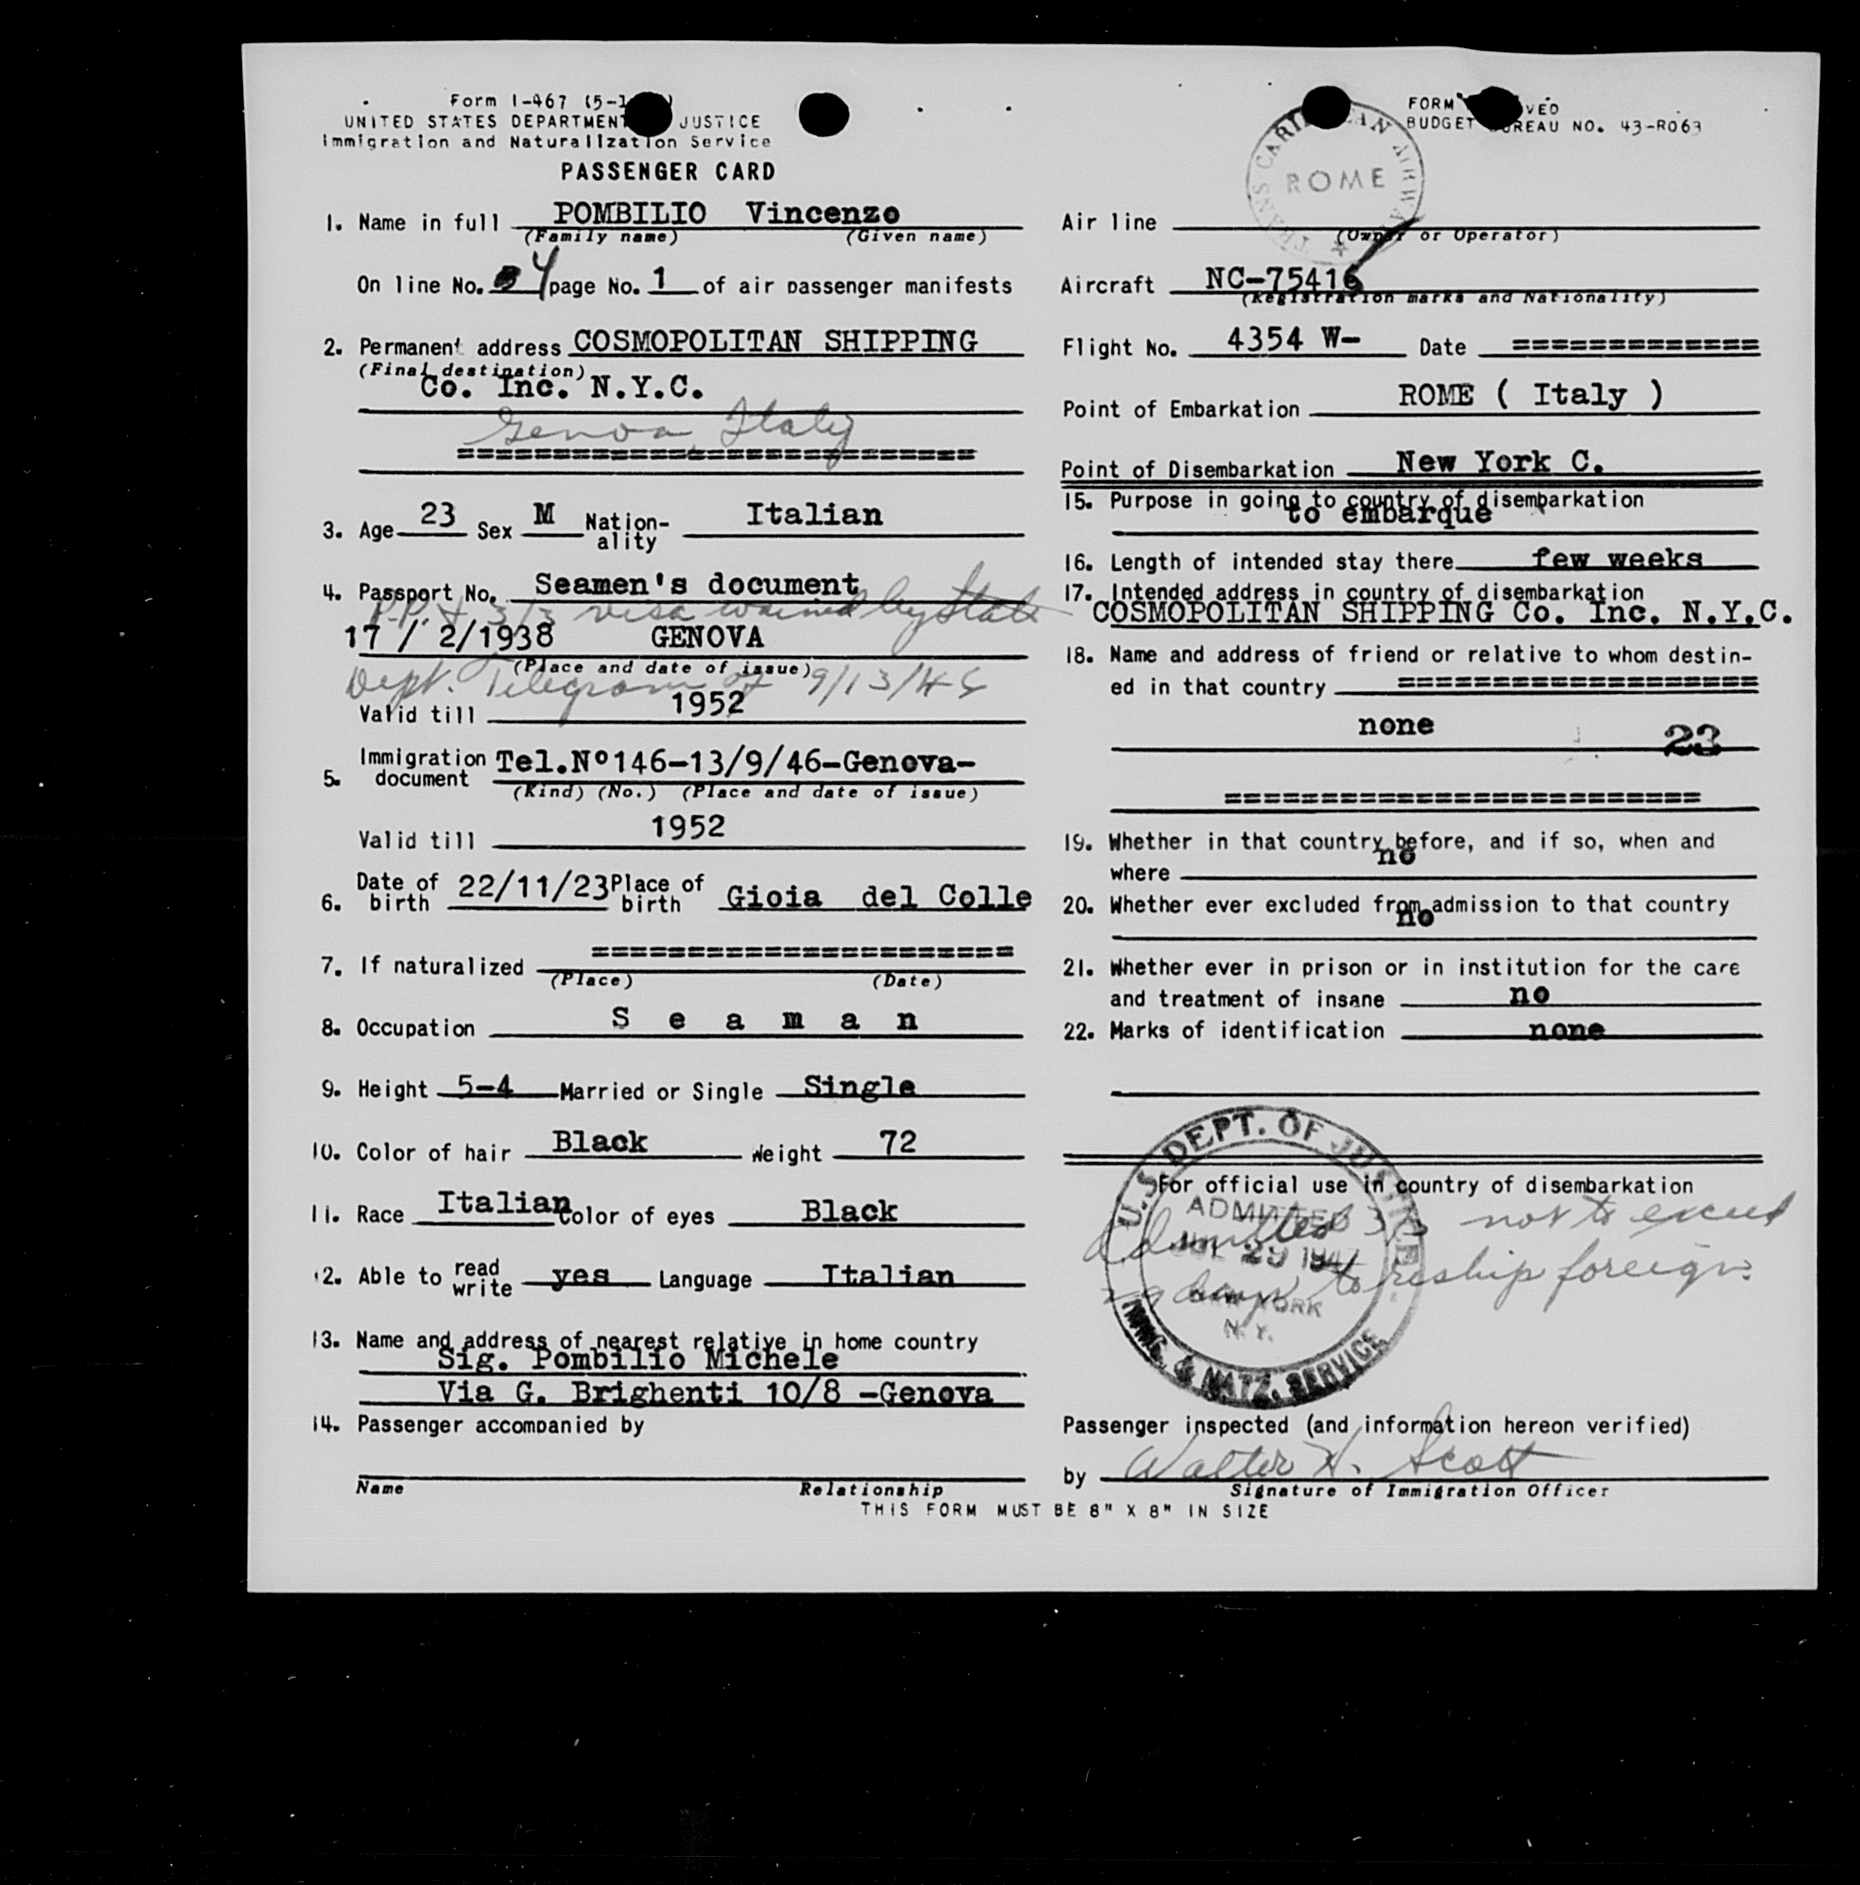 Form I-467 (5-1
UNITED STATES DEPARTMENT JUSTICE
Immigration and Naturalization Service
PASSENGER CARD
1. Name in full POMBILIO Vincenzo
(Family name) (Given name)
On line No. 4 page No. 1 of air passenger manifests
2. Permanent address COSMOPOLITAN SHIPPING
(Final destination)
Co. Inc. N.Y.C.
Genoa, Italy
===========================
3. Age 23 Sex M Nation-ality Italian
4. Passport No. Seamen's document
P.P. & 3/3 visa waived by State
17 / 2/1938 GENOVA
(Place and date of issue)
Dept. Telegram of 9/13/46
Valid till 1952
5. Immigration document Tel.Nº146-13/9/46-Genova-
(Kind) (No.) (Place and date of issue)
Valid till 1952
6. Date of birth 22/11/23 Place of birth Gioia del Colle
7. If naturalized ======================
(Place) (Date)
8. Occupation S e a m a n
9. Height 5-4 Married or Single Single
10. Color of hair Black Weight 72
11. Race Italian Color of eyes Black
12. Able to read write yes Language Italian
13. Name and address of nearest relative in home country
Sig. Pombilio Michele
Via G. Brighenti 10/8 -Genova
14. Passenger accompanied by
Name Relationship
FORM VED
BUDGET BUREAU NO. 43-R063
TRANS CARIBBEAN AIRWAYS
ROME
Air line
(Owner or Operator)
Aircraft NC-75416
(Registration marks and Nationality)
Flight No. 4354 W- Date =============
Point of Embarkation ROME ( Italy )
Point of Disembarkation New York C.
15. Purpose in going to country of disembarkation
to embarque
16. Length of intended stay there few weeks
17. Intended address in country of disembarkation
COSMOPOLITAN SHIPPING Co. Inc. N.Y.C.
18. Name and address of friend or relative to whom destin-
ed in that country ===================
none 23
=========================
19. Whether in that country before, and if so, when and
where no
20. Whether ever excluded from admission to that country
no
21. Whether ever in prison or in institution for the care
and treatment of insane no
22. Marks of identification none
For official use in country of disembarkation
U.S. DEPT. OF JUSTICE
ADMITTED
29 1947
NEW YORK
N.Y.
IMMG. & NATZ. SERVICE
Admitted 3/3 not to exceed
29 days to reship foreign.
Passenger inspected (and information hereon verified)
by Walter H. Scott
Signature of Immigration Officer
THIS FORM MUST BE 8" X 8" IN SIZE